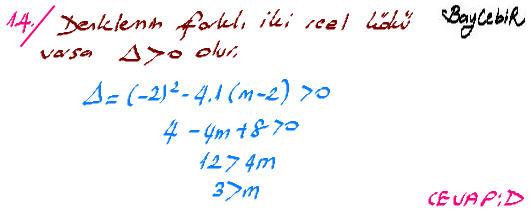 14./ Denklemin farklı iki reel kökü BayCebiR
varsa Δ>0 olur.
Δ=(-2)²-4.1(m-2)>0
4-4m+8>0
12>4m
3>m
CEVAP:D